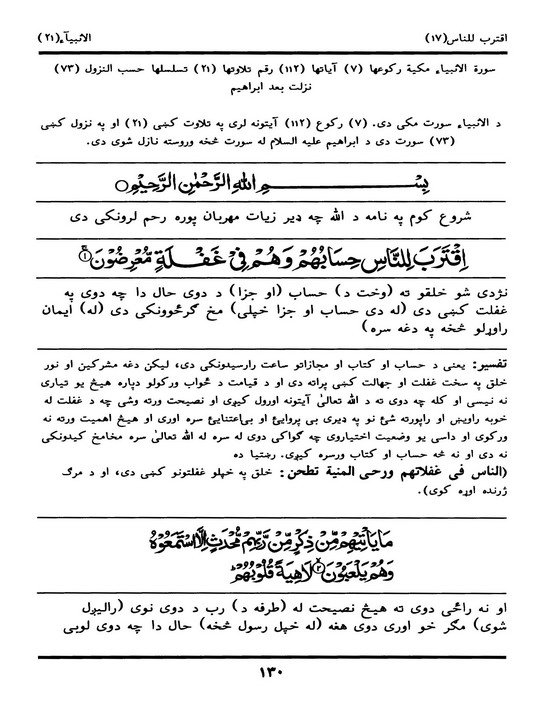 اقترب للناس(١٧) الانبيآء(٢١)
سورة الانبياء مكية ركوعها (٧) آياتها (١١٢) رقم تلاوتها (٢١) تسلسلها حسب النزول (٧٣)
نزلت بعد ابراهيم
د الانبياء سورت مكی دی. (٧) ركوع (١١٢) آيتونه لری په تلاوت كښی (٢١) او په نزول كښی
(٧٣) سورت دی د ابراهيم عليه السلام له سورت څخه وروسته نازل شوی دی.
بِسْــــمِ اللهِ الرَّحْمٰنِ الرَّحِيْمِ○
شروع كوم په نامه د الله چه ډير زيات مهربان پوره رحم لرونكی دی
اِقْتَرَبَ لِلنَّاسِ حِسَابُهُمْ وَهُمْ فِيْ غَفْلَةٍ مُّعْرِضُوْنَ ۚ ①
نژدی شو خلقو ته (وخت د) حساب (او جزا) د دوی حال دا چه دوی په
غفلت كښی دی (له دی حساب او جزا خپلی) مخ گرځوونكی دی (له) ايمان
راوړلو څخه په دغه سره)
تفسير: يعنی د حساب او كتاب او مجازاتو ساعت رارسيدونكی دی، ليكن دغه مشركين او نور
خلق په سخت غفلت او جهالت كښی پراته دی او د قيامت د ځواب وركولو دپاره هيڅ يو تياری
نه نيسی او كله چه دوی ته د الله تعالیٰ آيتونه اورول كيږی او نصيحت ورته وشی چه د غفلت له
خوبه راويښ او راپورته شئ نو په ډيری بی پروايئ او بی‌اعتنايئ سره اوری او هيڅ اهميت ورته نه
وركوی او داسی يو وضعيت اختياروی چه گواكی دوی له سره له الله تعالیٰ سره مخامخ كيدونكی
نه دی او نه څه حساب او كتاب ورسره كيږی. رښتيا ده
(الناس فی غفلاتهم ورحی المنية تطحن: خلق په خپلو غفلتونو كښی دی، او د مرگ
ژرنده اوړه كوی).
مَا يَاْتِيْهِمْ مِّنْ ذِكْرٍ مِّنْ رَّبِّهِمْ مُّحْدَثٍ اِلَّا اسْتَمَعُوْهُ
وَهُمْ يَلْعَبُوْنَ ② لَاهِيَةً قُلُوْبُهُمْ ؕ
او نه راځی دوی ته هيڅ نصيحت له (طرفه د) رب د دوی نوی (راليږل
شوی) مگر خو اوری دوی هغه (له خپل رسول څخه) حال دا چه دوی لوبی
١٣٠